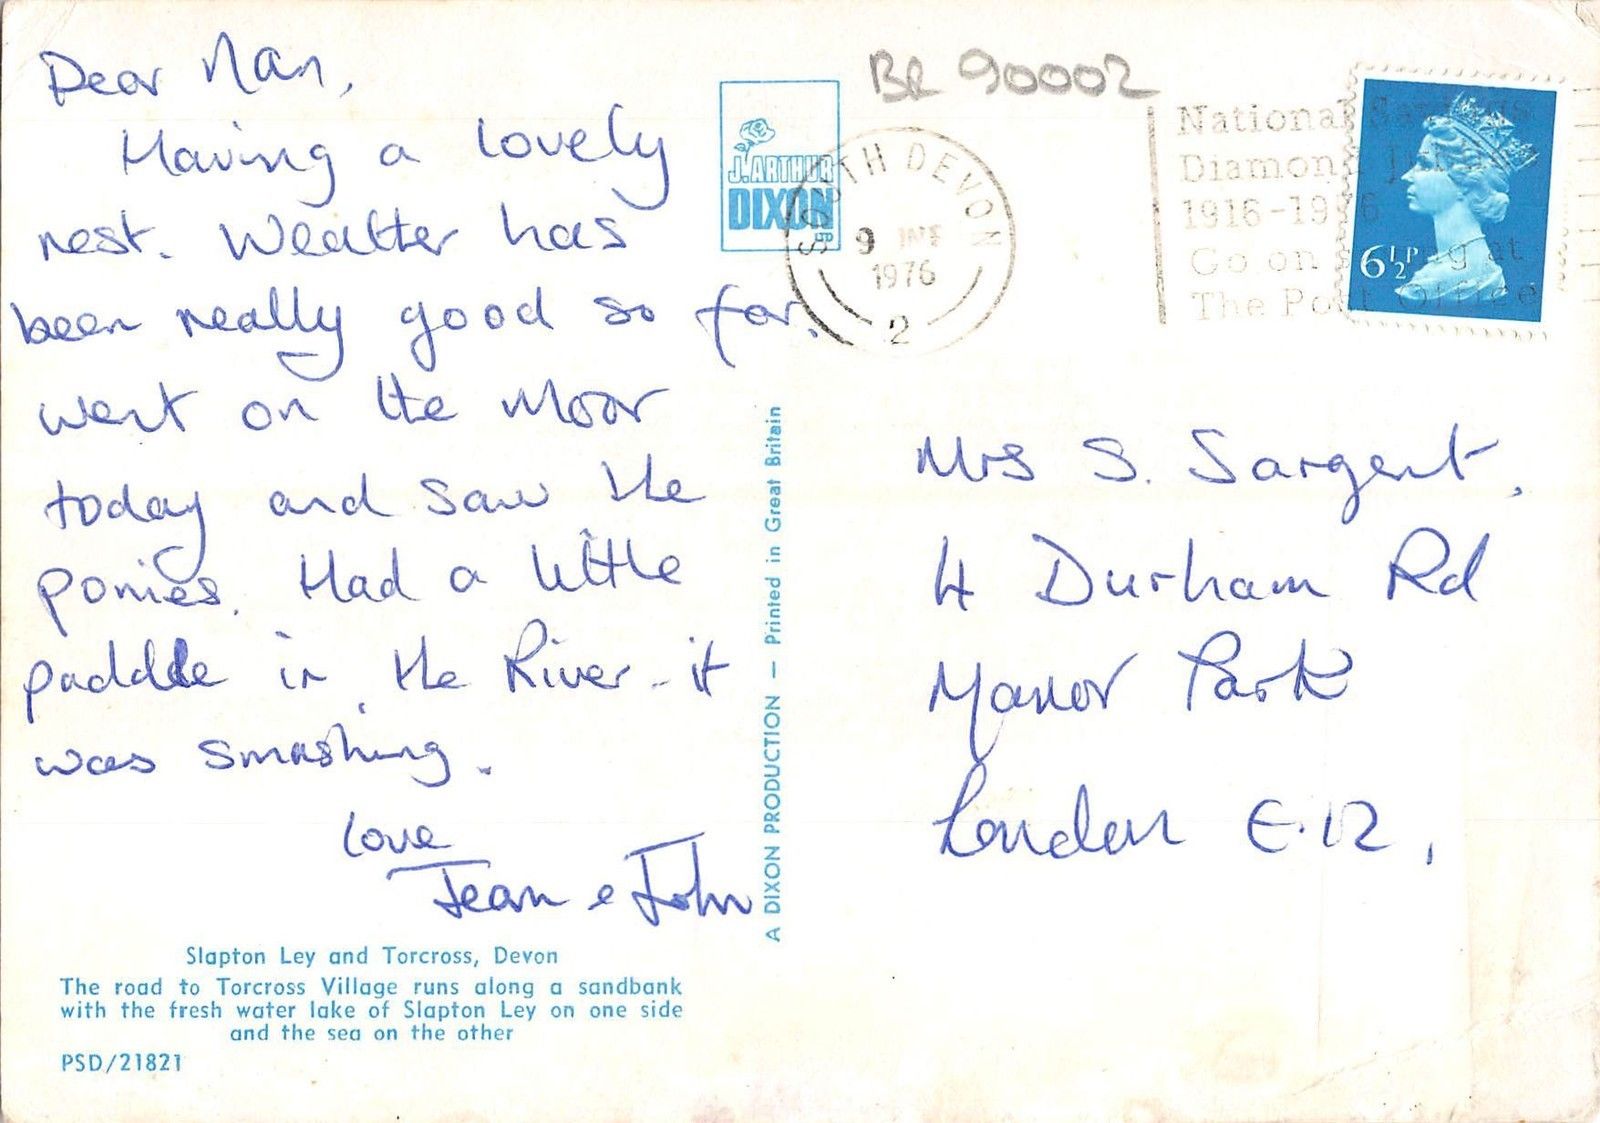 Dear Nan,
Having a lovely
rest. Weather has
been really good so far.
went on the Moor
today and saw the
ponies. Had a little
paddle in the River - it
was smashing.
Love
Jean & John
Slapton Ley and Torcross, Devon
The road to Torcross Village runs along a sandbank
with the fresh water lake of Slapton Ley on one side
and the sea on the other
PSD/21821
J. ARTHUR
DIXON
A DIXON PRODUCTION — Printed in Great Britain
BR 90002
SOUTH DEVON
9 JNE
1976
2
National Savings
Diamond
1916-1976
Go on at
The Post Office
6½P
Mrs S. Sargent,
4 Durham Rd
Manor Park
London E.12,